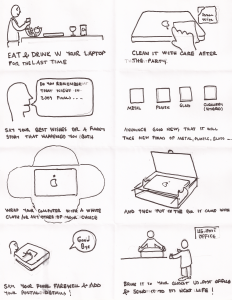 EAT & DRINK W YOUR LAPTOP
FOR THE LAST TIME
CLEAN IT WITH CARE AFTER
THE PARTY.
DO YOU REMEMBER
THAT NIGHT IN
2007 FINALS....
METAL
PLASTIC
GLASS
SAY YOUR BEST WISHES OR A FUNNY
STORY THAT HAPPENED TO U BOTH
ANNOUNCE GOOD NEWS, THAT IT WILL
TAKE NEW FORMS OF METAL, PLASTIC, GLASS ...
WRAP YOUR COMPUTER WITH A WHITE
CLOTH OR ANY OTHER OF YOUR CHOICE
AND THEN PUT IN THE BOX IT CAME WITH
GOOD
BYE
US. POST
OFFICE
SAY YOUR FINAL FAREWELL & ADD
YOUR POSTAL DETAILS!
BRING IT TO YOUR CLOSEST US. POST OFFICE
& SEND IT TO ITS NEXT LIFE!